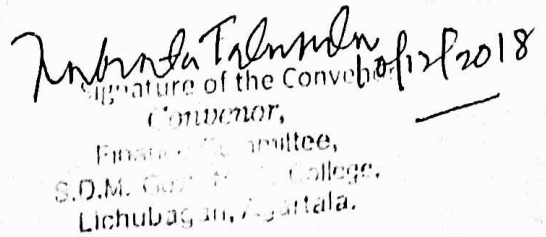 10/12/2018
Signature of the Convenor
Convenor,
Finance Committee,
S.D.M. Govt. College,
Lichubagan, Agartala.